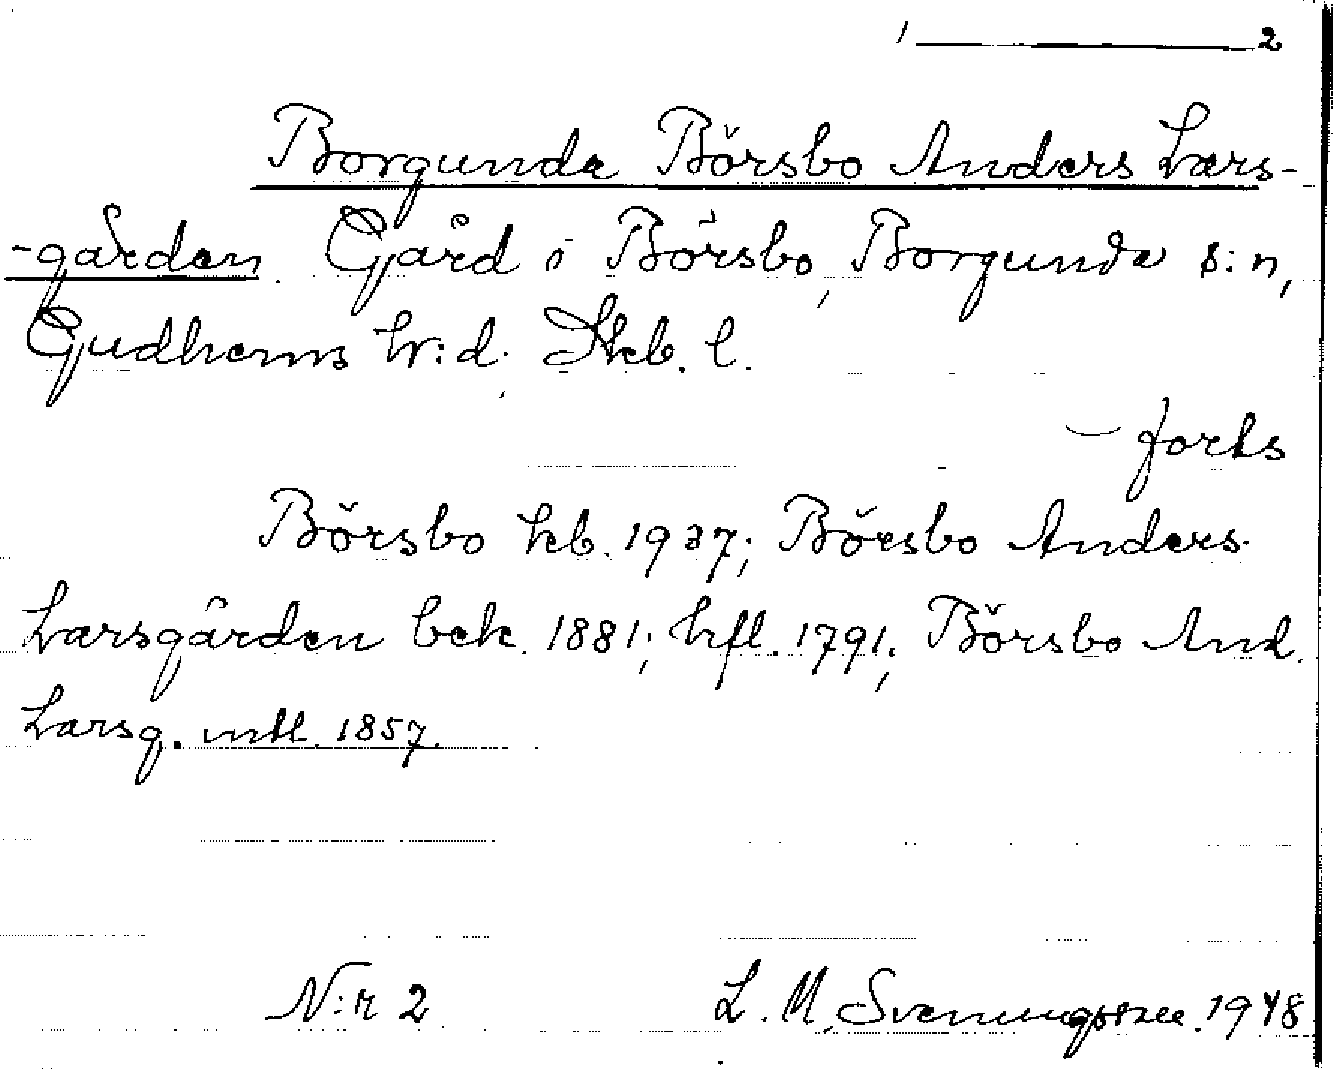 1 ——— 2
Borgunda Börsbo Anders Lars-
-gården. Gård i Börsbo, Borgunda s:n,
Gudhems h:d. Skb. l.
— forts
Börsbo kb. 1937; Börsbo Anders
Larsgården bek. 1881; hfl. 1791; Börsbo And.
Larsg. mtl. 1857.
N:r 2 L. M. Svenungsson. 1948